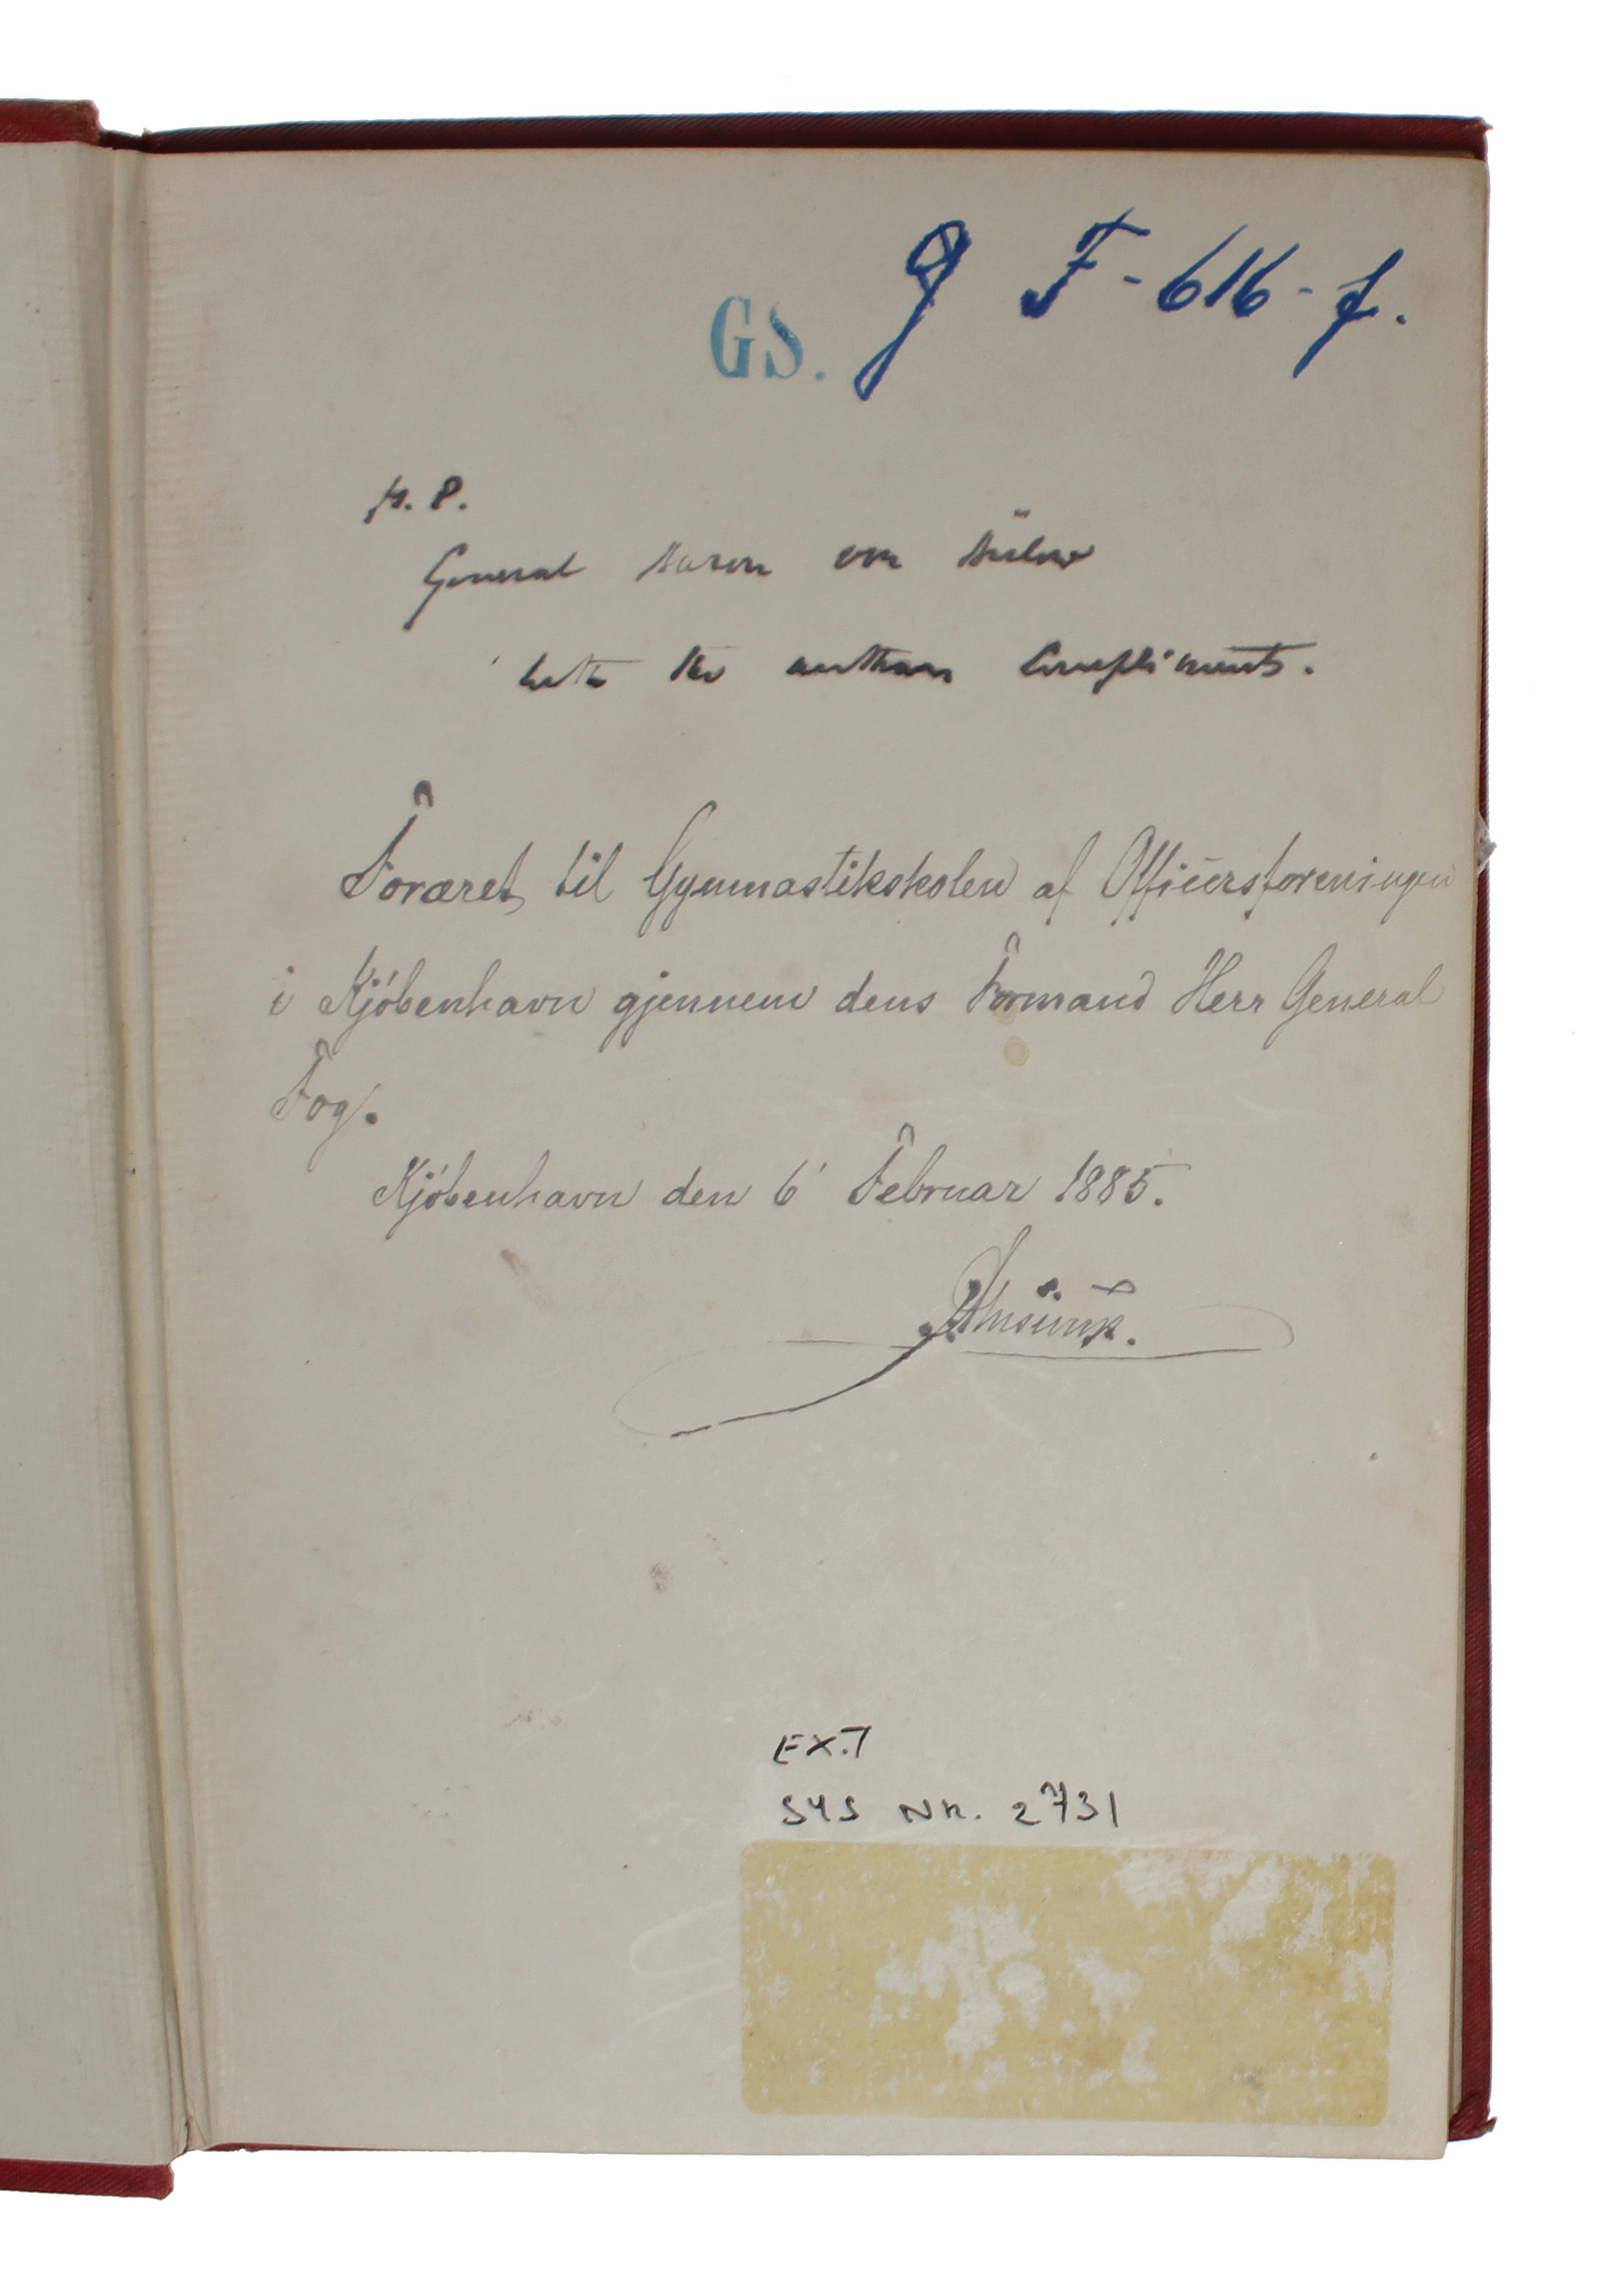 g F-616-f.
GS.
General Baron von Bülow
with the authors Compliments.
Foræret til Gymnastikskolen af Officersforeningen
i Kjöbenhavn gjennem dens Formand Herr General
Fog.
Kjöbenhavn den 6' Februar 1885.
EX.1
SYS NR. 2731